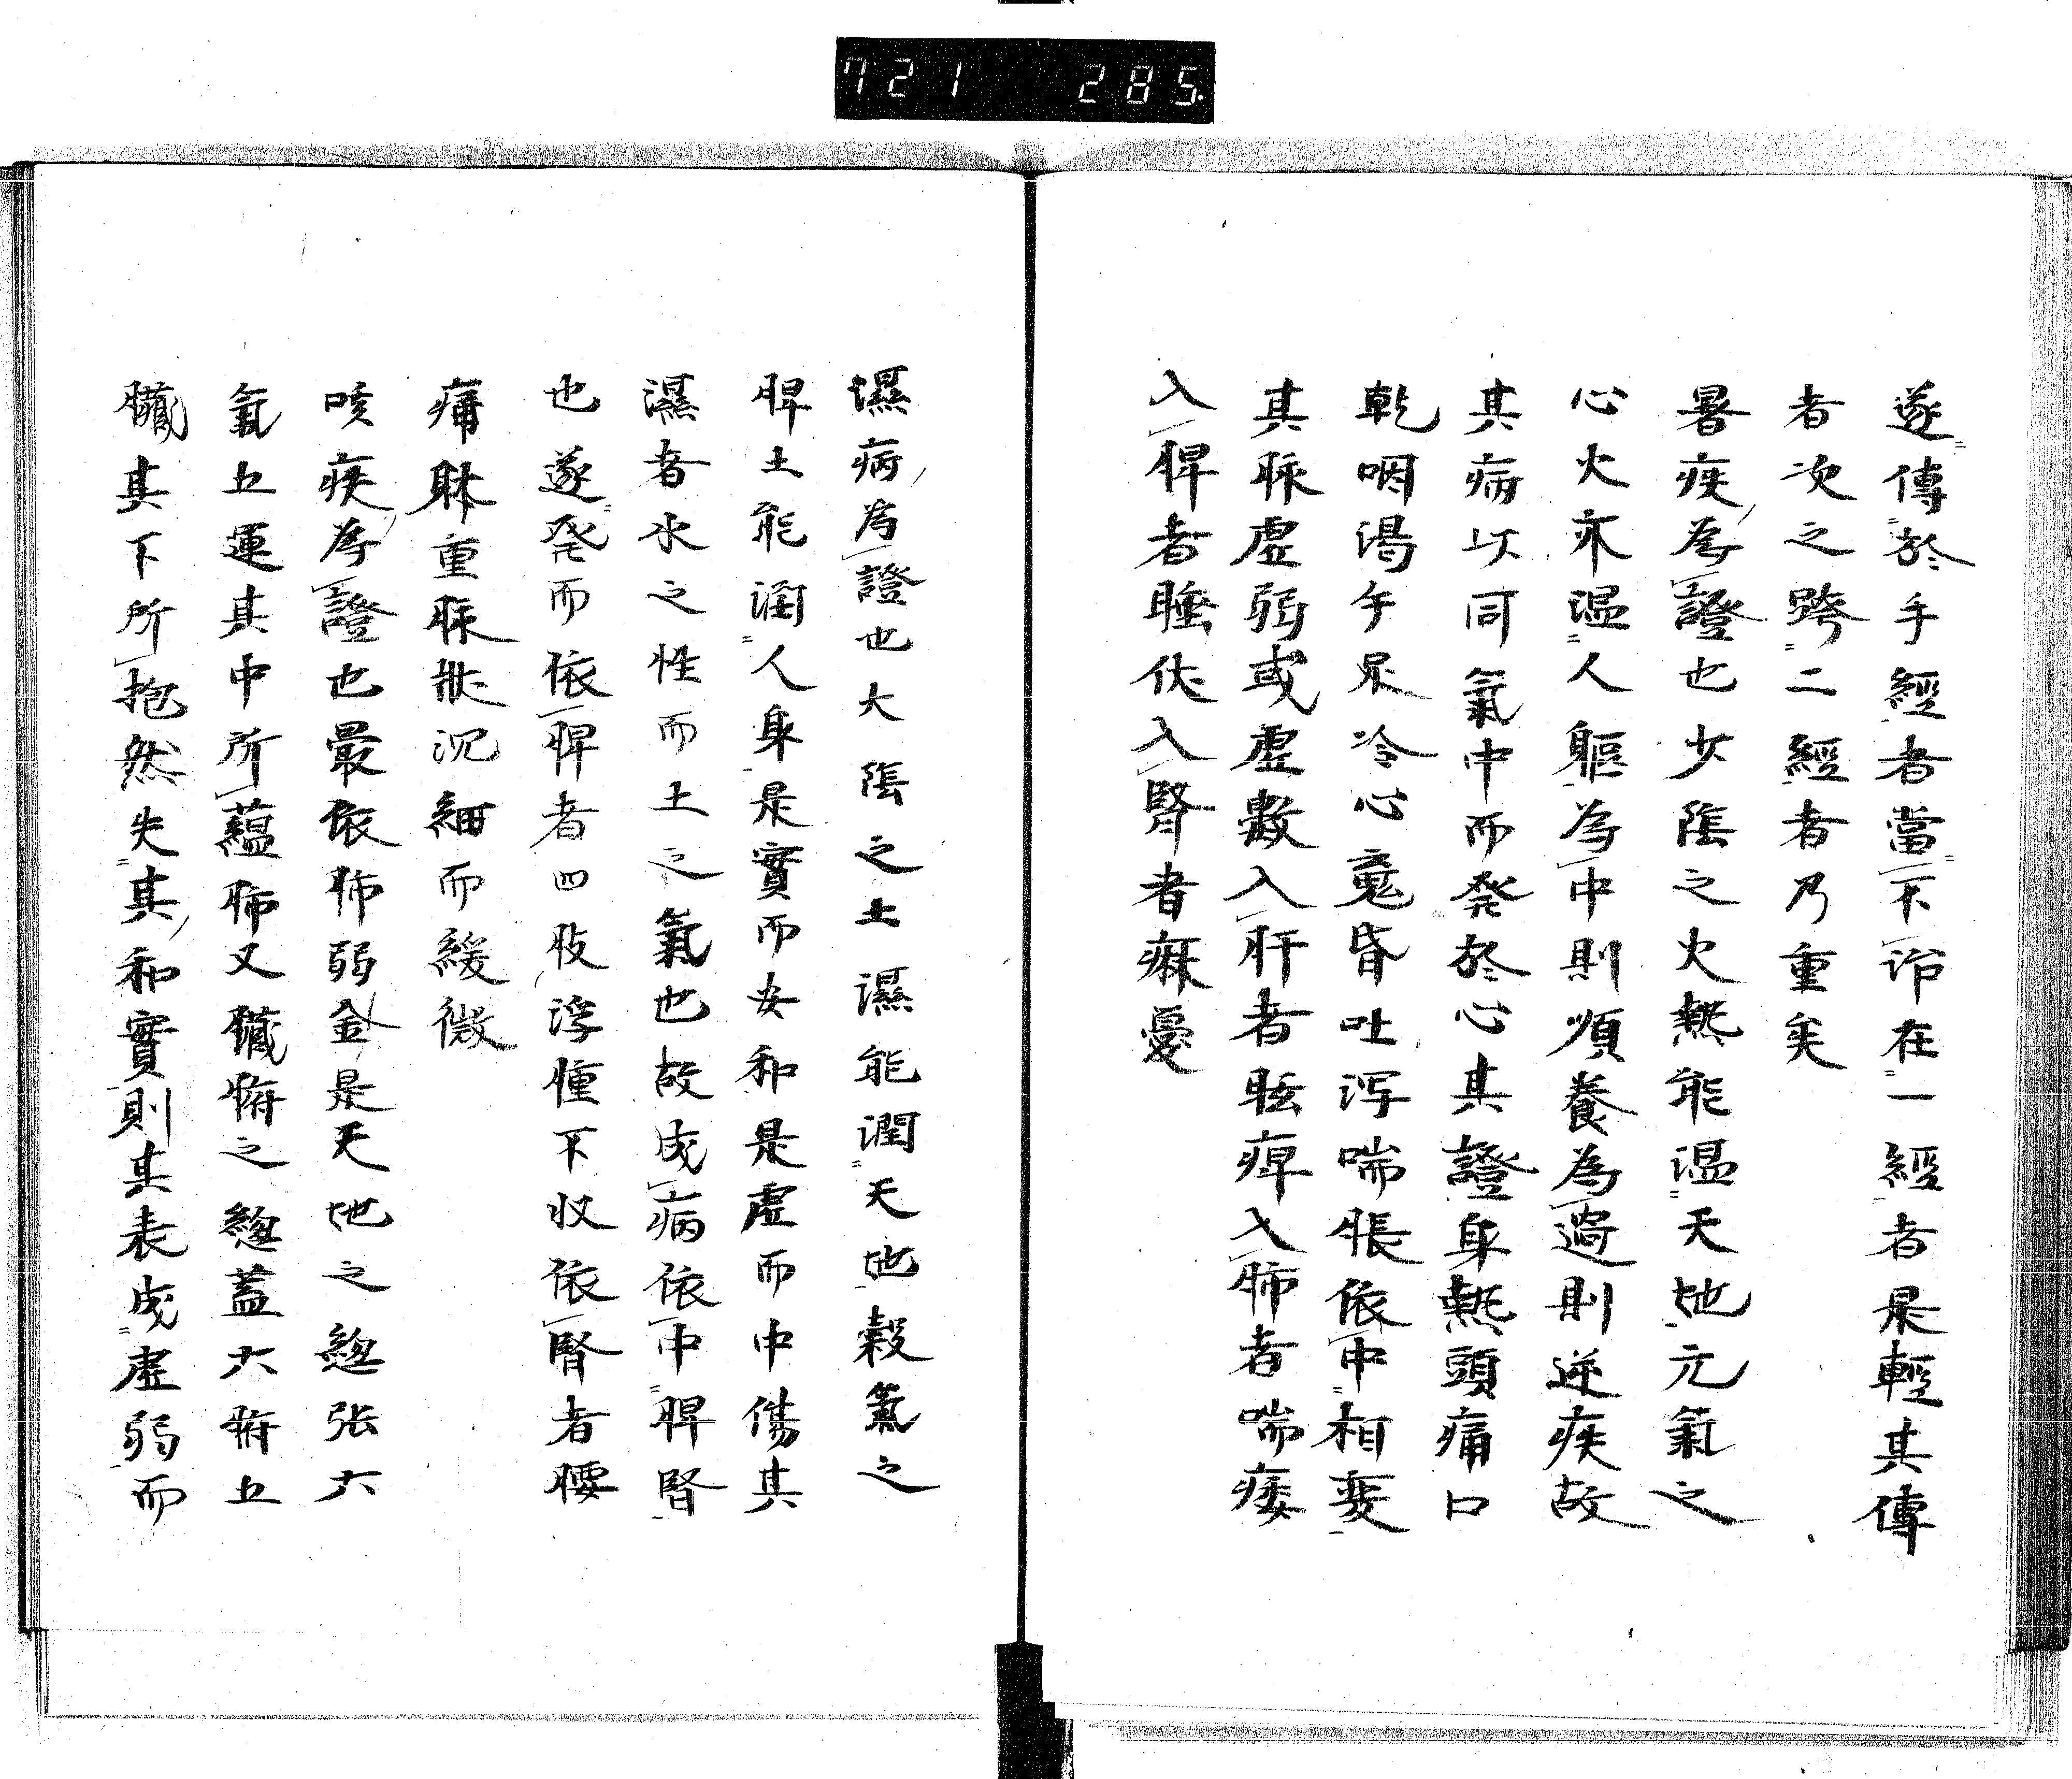 721 285
遂傳於手經者當不治在一經者是輕其傳
者次之跨二經者乃重矣
暑疾為證也少陰之火熱能温天地元氣之
心火亦温人軀為中則順養為過則逆疾故
其病以同氣中而発於心其證身熱頭痛口
乾咽渇午足冷心竟昏吐泻喘脹依中相變
其脉虚弱或虚數入肝者眩痺入肺者喘痿
入脾者睡伏入腎者痳憂
濕病為證也大陰之土濕能潤天地穀氣之
脾土能潤人身是實而安和是虚而中傷其
濕者水之性而土之氣也故成病依中脾腎
也遂発而依脾者四肢浮憧不收依腎者腰
痛躰重脉状沉細而緩微
咳疾為證也最依肺弱金是天地之總張六
氣五運其中所蘊肺又臓腑之總蓋六腑五
臓其下所抱然失其和實則其表成虚弱而